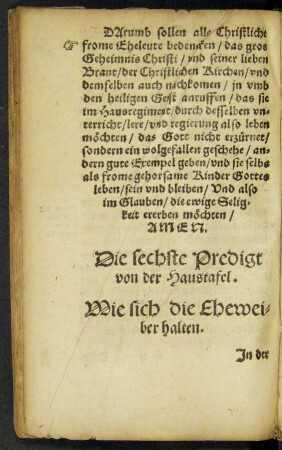 DArumb sollen alle Christliche
☞ frome Eheleute bedencken / das gros
Geheimnis Christi / vnd seiner lieben
Braut / der Christlichen Kirchen / vnd
demselben auch nachkomen / jn vmb
den heiligen Geist anruffen / das sie
im Hausregiment / durch desselben vn-
terricht / lere / vnd regierung also leben
möchten / das Gott nicht erzürnet /
sondern ein wolgefallen geschehe / an-
dern gute Exempel geben / vnd sie selbs
als frome gehorsame Kinder Gottes
leben / sein vnd bleiben / Vnd also
im Glauben / die ewige Selig-
keit ererben möchten /
AMEN.
Die sechste Predigt
von der Haustafel.
Wie sich die Ehewei-
ber halten.
In der